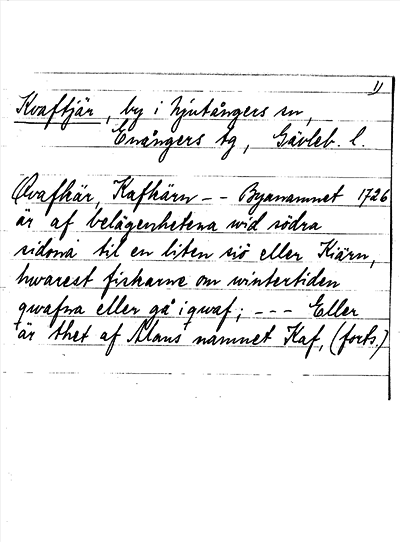 1)
Kvaftjär, by i Njutångers sn,
Enångers tg, Gävleb. l.
Qvafkär, Kafkärn -- Byanamnet 1726
är af belägenhetena wid södra
sidona til en liten siö eller Kiärn,
hwarest fiskarne om wintertiden
qwafna eller gå i qwaf; --- Eller
är thet af Mans namnet Kaf, (forts.)